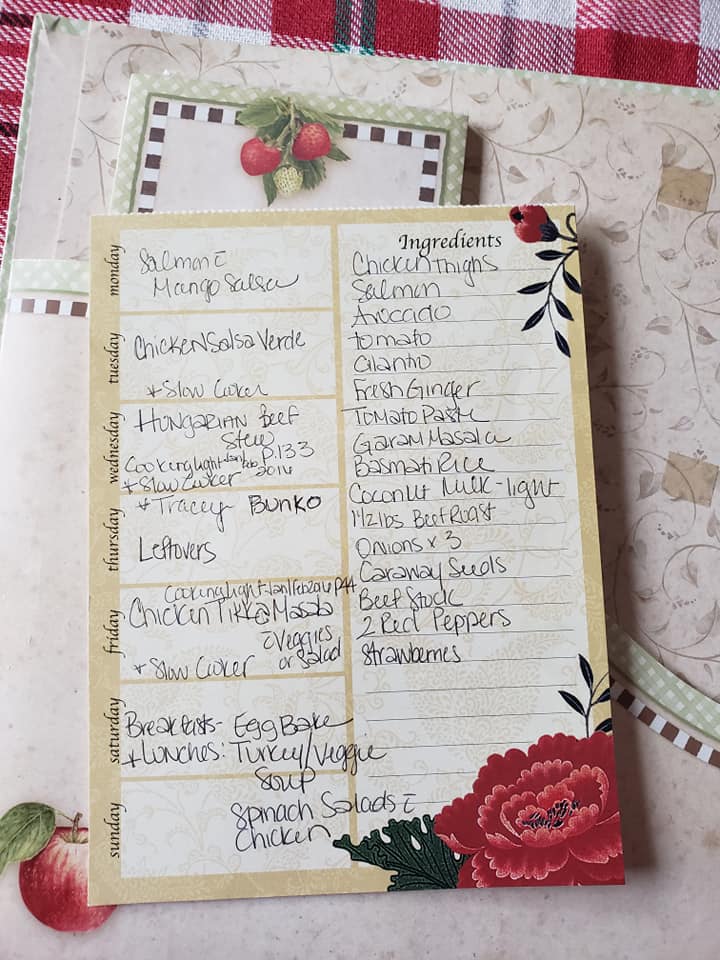 monday
Salmon c̄
Mango Salsa
tuesday
Chicken Salsa Verde
* Slow Cooker
wednesday
Hungarian Beef
Stew
Cooking light Jan/Feb P.133
2016
* Slow Cooker
thursday
* Tracey Bunko
Leftovers
friday
Cooking light Jan/Feb 2016 p44
Chicken Tikka Masala
c̄ Veggies
or Salad
* Slow Cooker
saturday
Breakfasts- Egg Bake
+ Lunches: Turkey/Veggie
Soup
sunday
Spinach Salads c̄
Chicken
Ingredients
Chicken Thighs
Salmon
Avocado
tomato
Cilanto
Fresh Ginger
Tomato Paste
Garam Masala
Basmati Rice
Coconut Milk - light
1 1/2 lbs Beef Roast
Onions x 3
Caraway Seeds
Beef Stock
2 Red Peppers
Strawberries